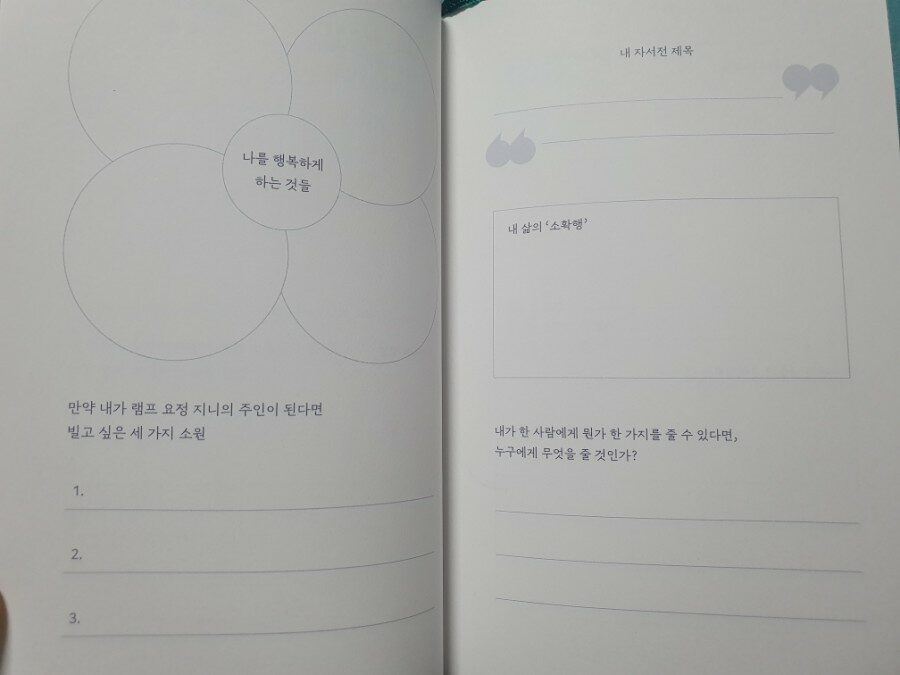 나를 행복하게
하는 것들
만약 내가 램프 요정 지니의 주인이 된다면
빌고 싶은 세 가지 소원
1.
2.
3.
내 자서전 제목
”
“
내 삶의 ‘소확행’
내가 한 사람에게 뭔가 한 가지를 줄 수 있다면,
누구에게 무엇을 줄 것인가?